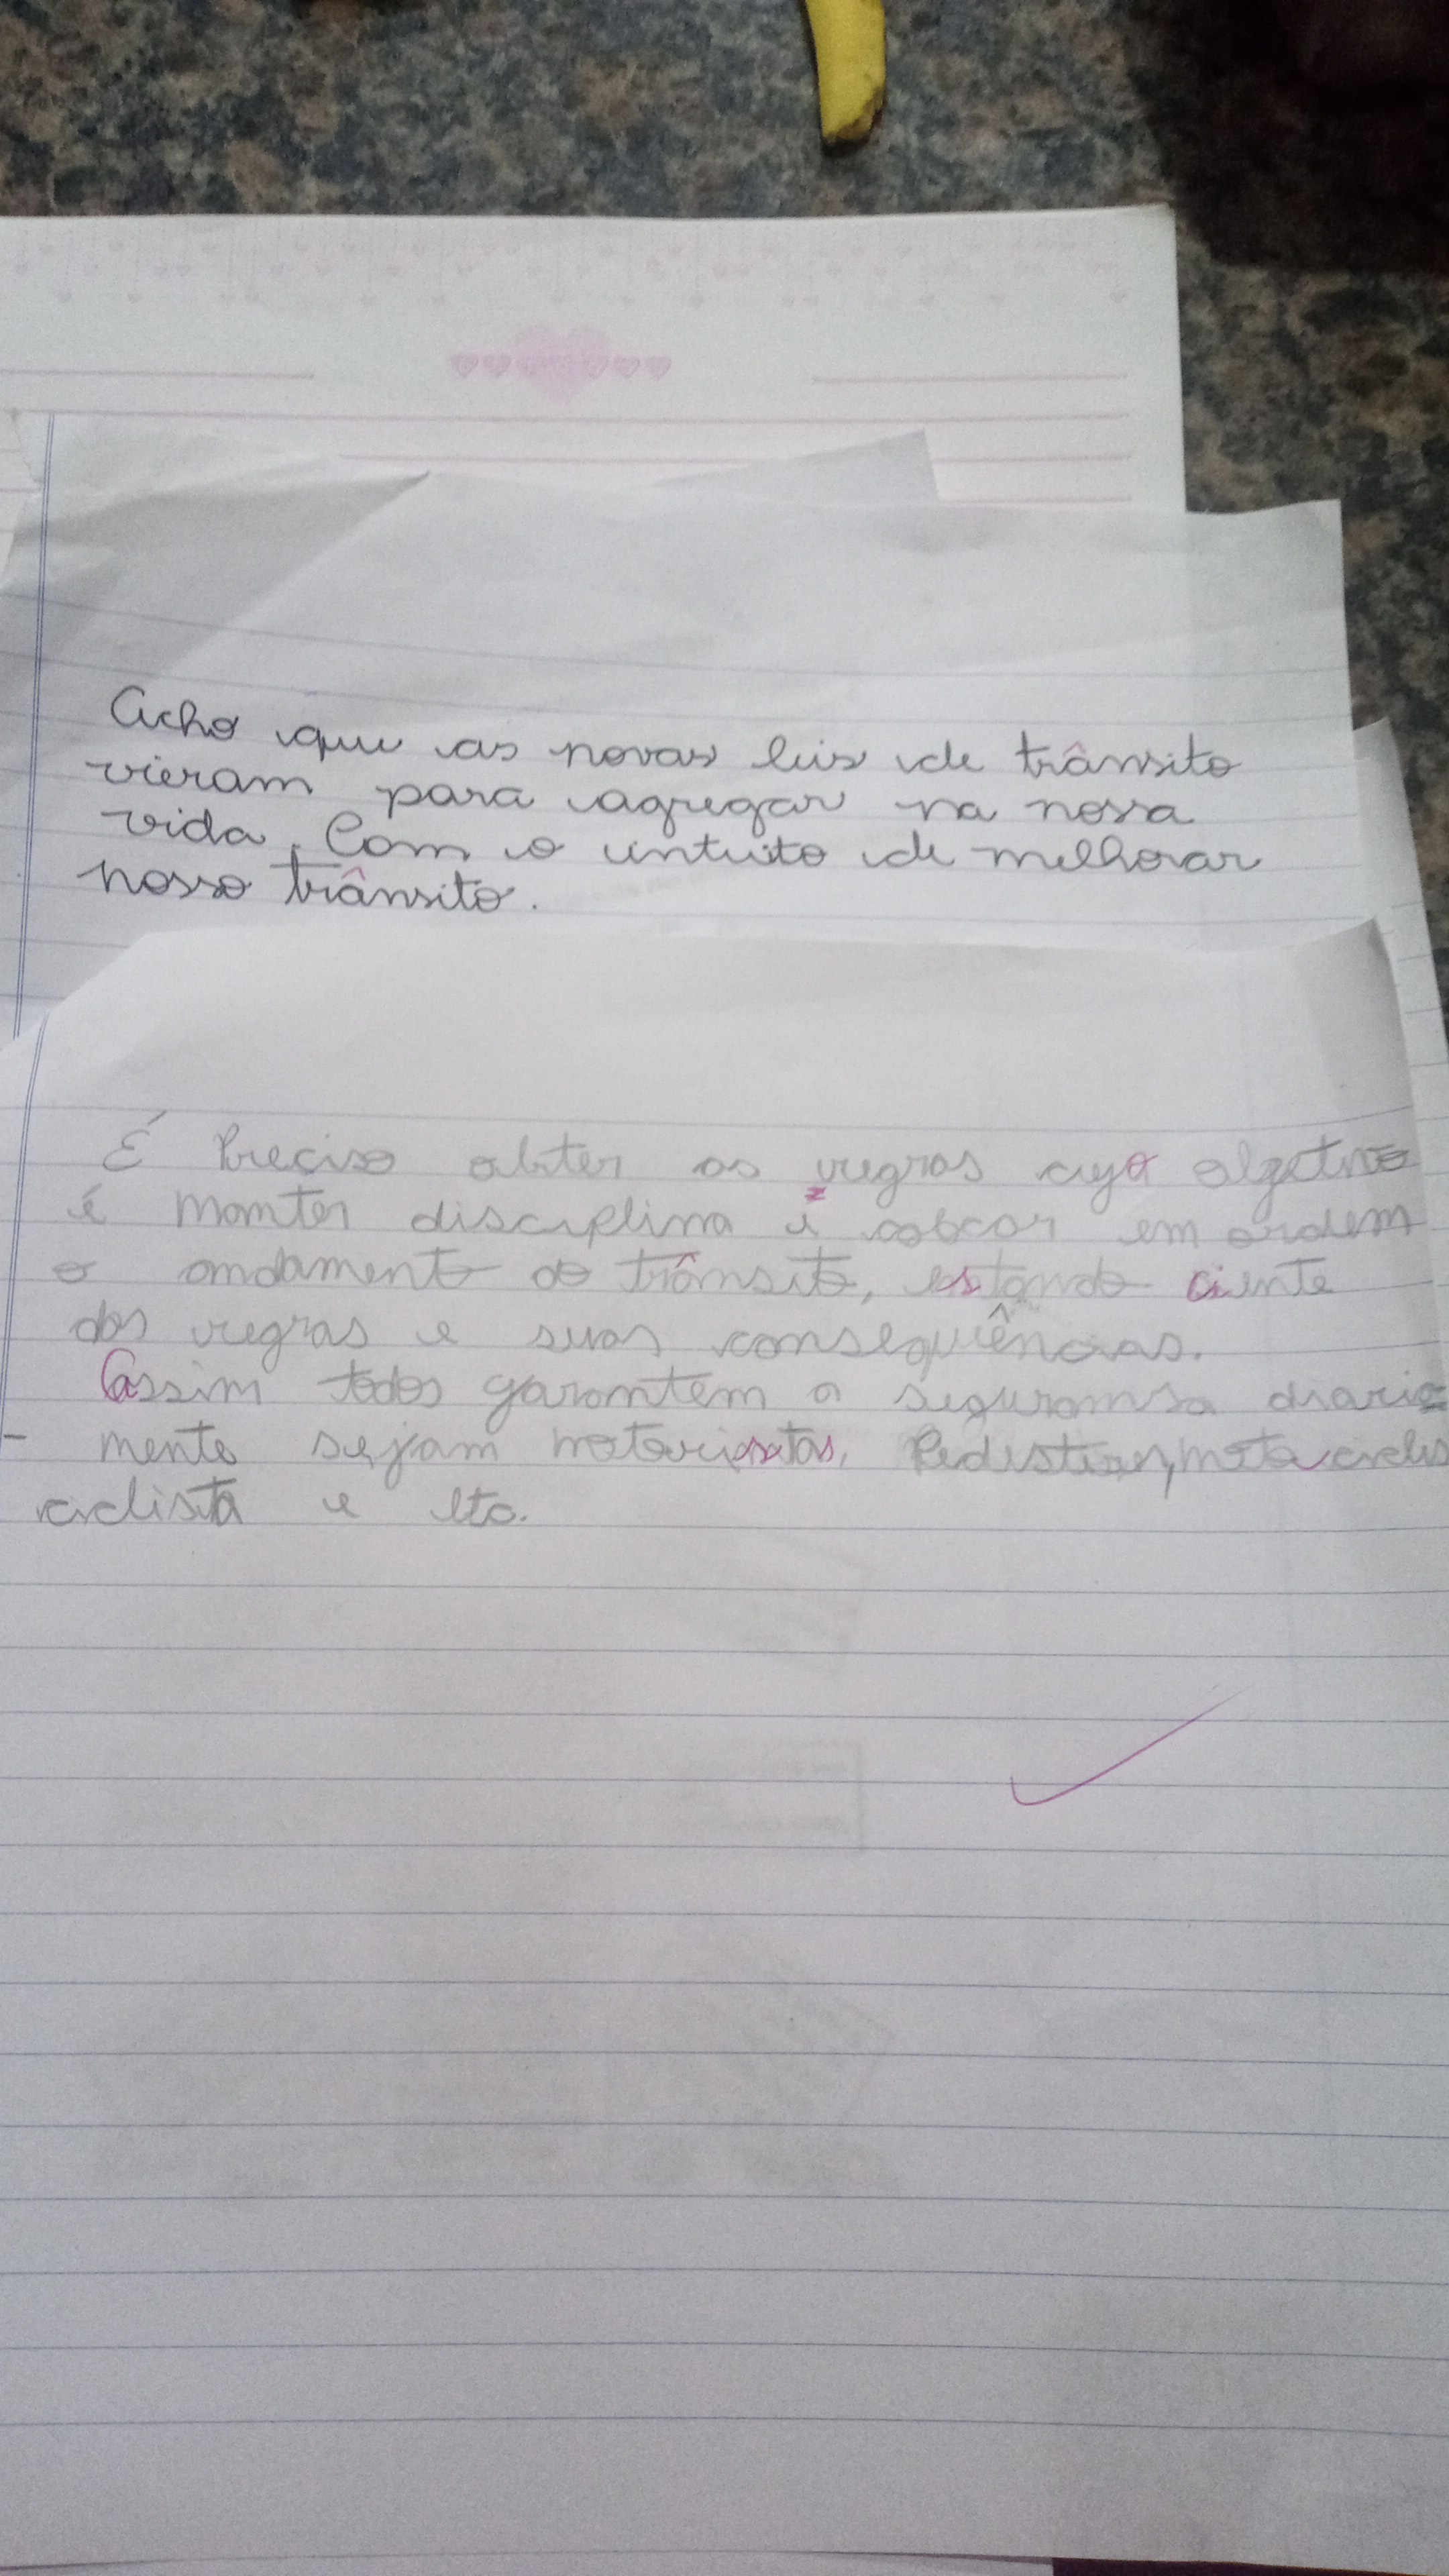 Acho que as novas leis de trânsito
vieram para agregar na nossa
vida. Com o intuito de melhorar
nosso trânsito.
É Preciso obter as regras cujo objetivo
é manter disciplina e colocar em ordem
o andamento do trânsito, estando ciente
das regras e suas consequências.
Assim todos garantem a seguransa diaria
- mente sejam motoristas, Pedestres, moto
ciclista e etc.